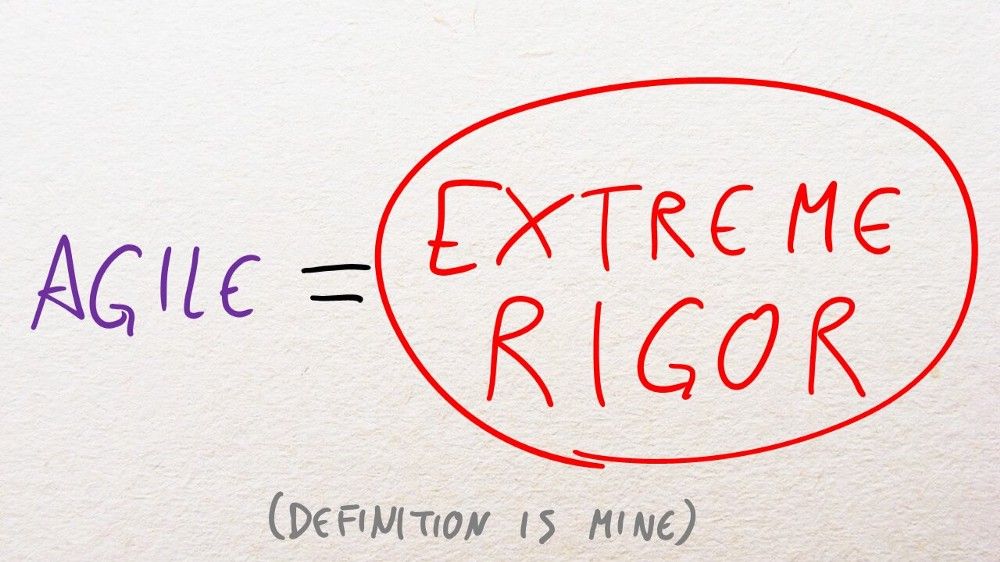 AGILE = EXTREME
RIGOR
(DEFINITION IS MINE)